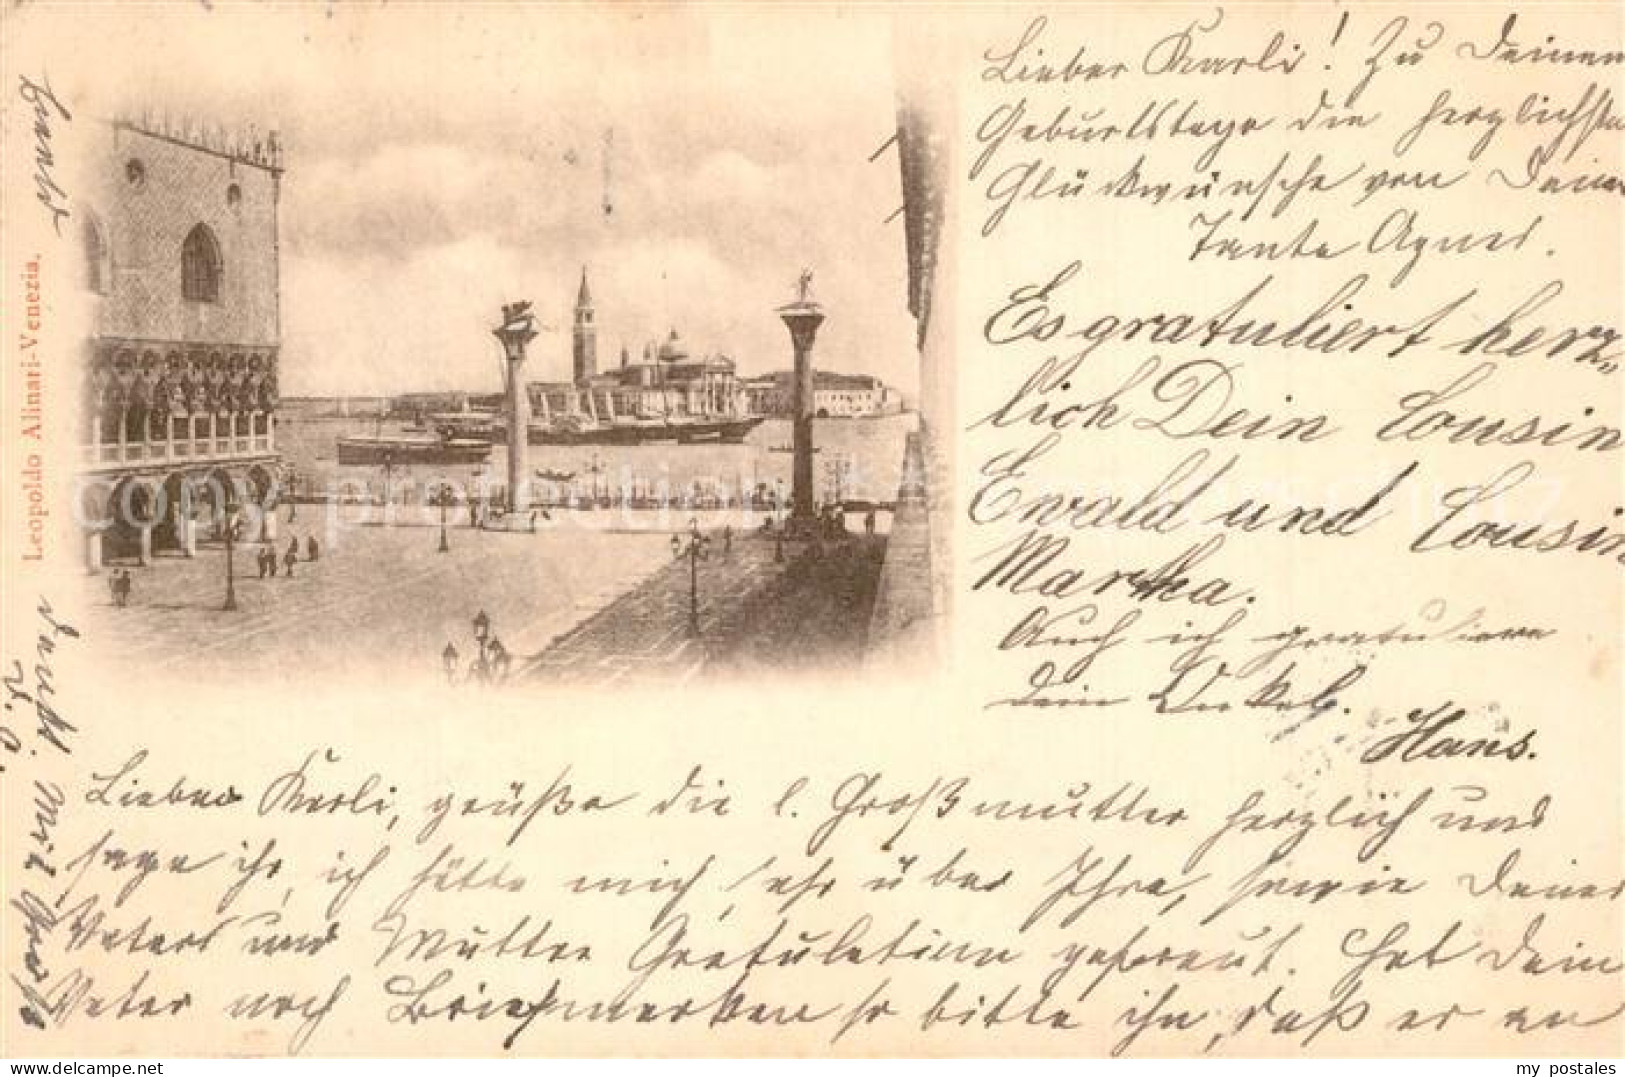 Lieber Karli! Zu Deinem
Geburtstage die herzlichsten
Glückwünsche von Deiner
Tante Agnes.
Es gratuliert herz„
lich Dein Cousin
Ewald und Cousin
Martha.
Auch ich gratuliere
Dein Onkel.
Hans.
Lieber Karli, grüße die l. Großmutter herzlich und
sage ihr, ich hätte mich sehr über Ihre, sowie Deines
Vaters und Mutter Gratulation gefreut. Hat Dein
Vater noch Briefmarken so bitte ihn, daß er an
dankt. Mit Gruß
Leopoldo Alinari-Venezia.
copyright protection
my postales